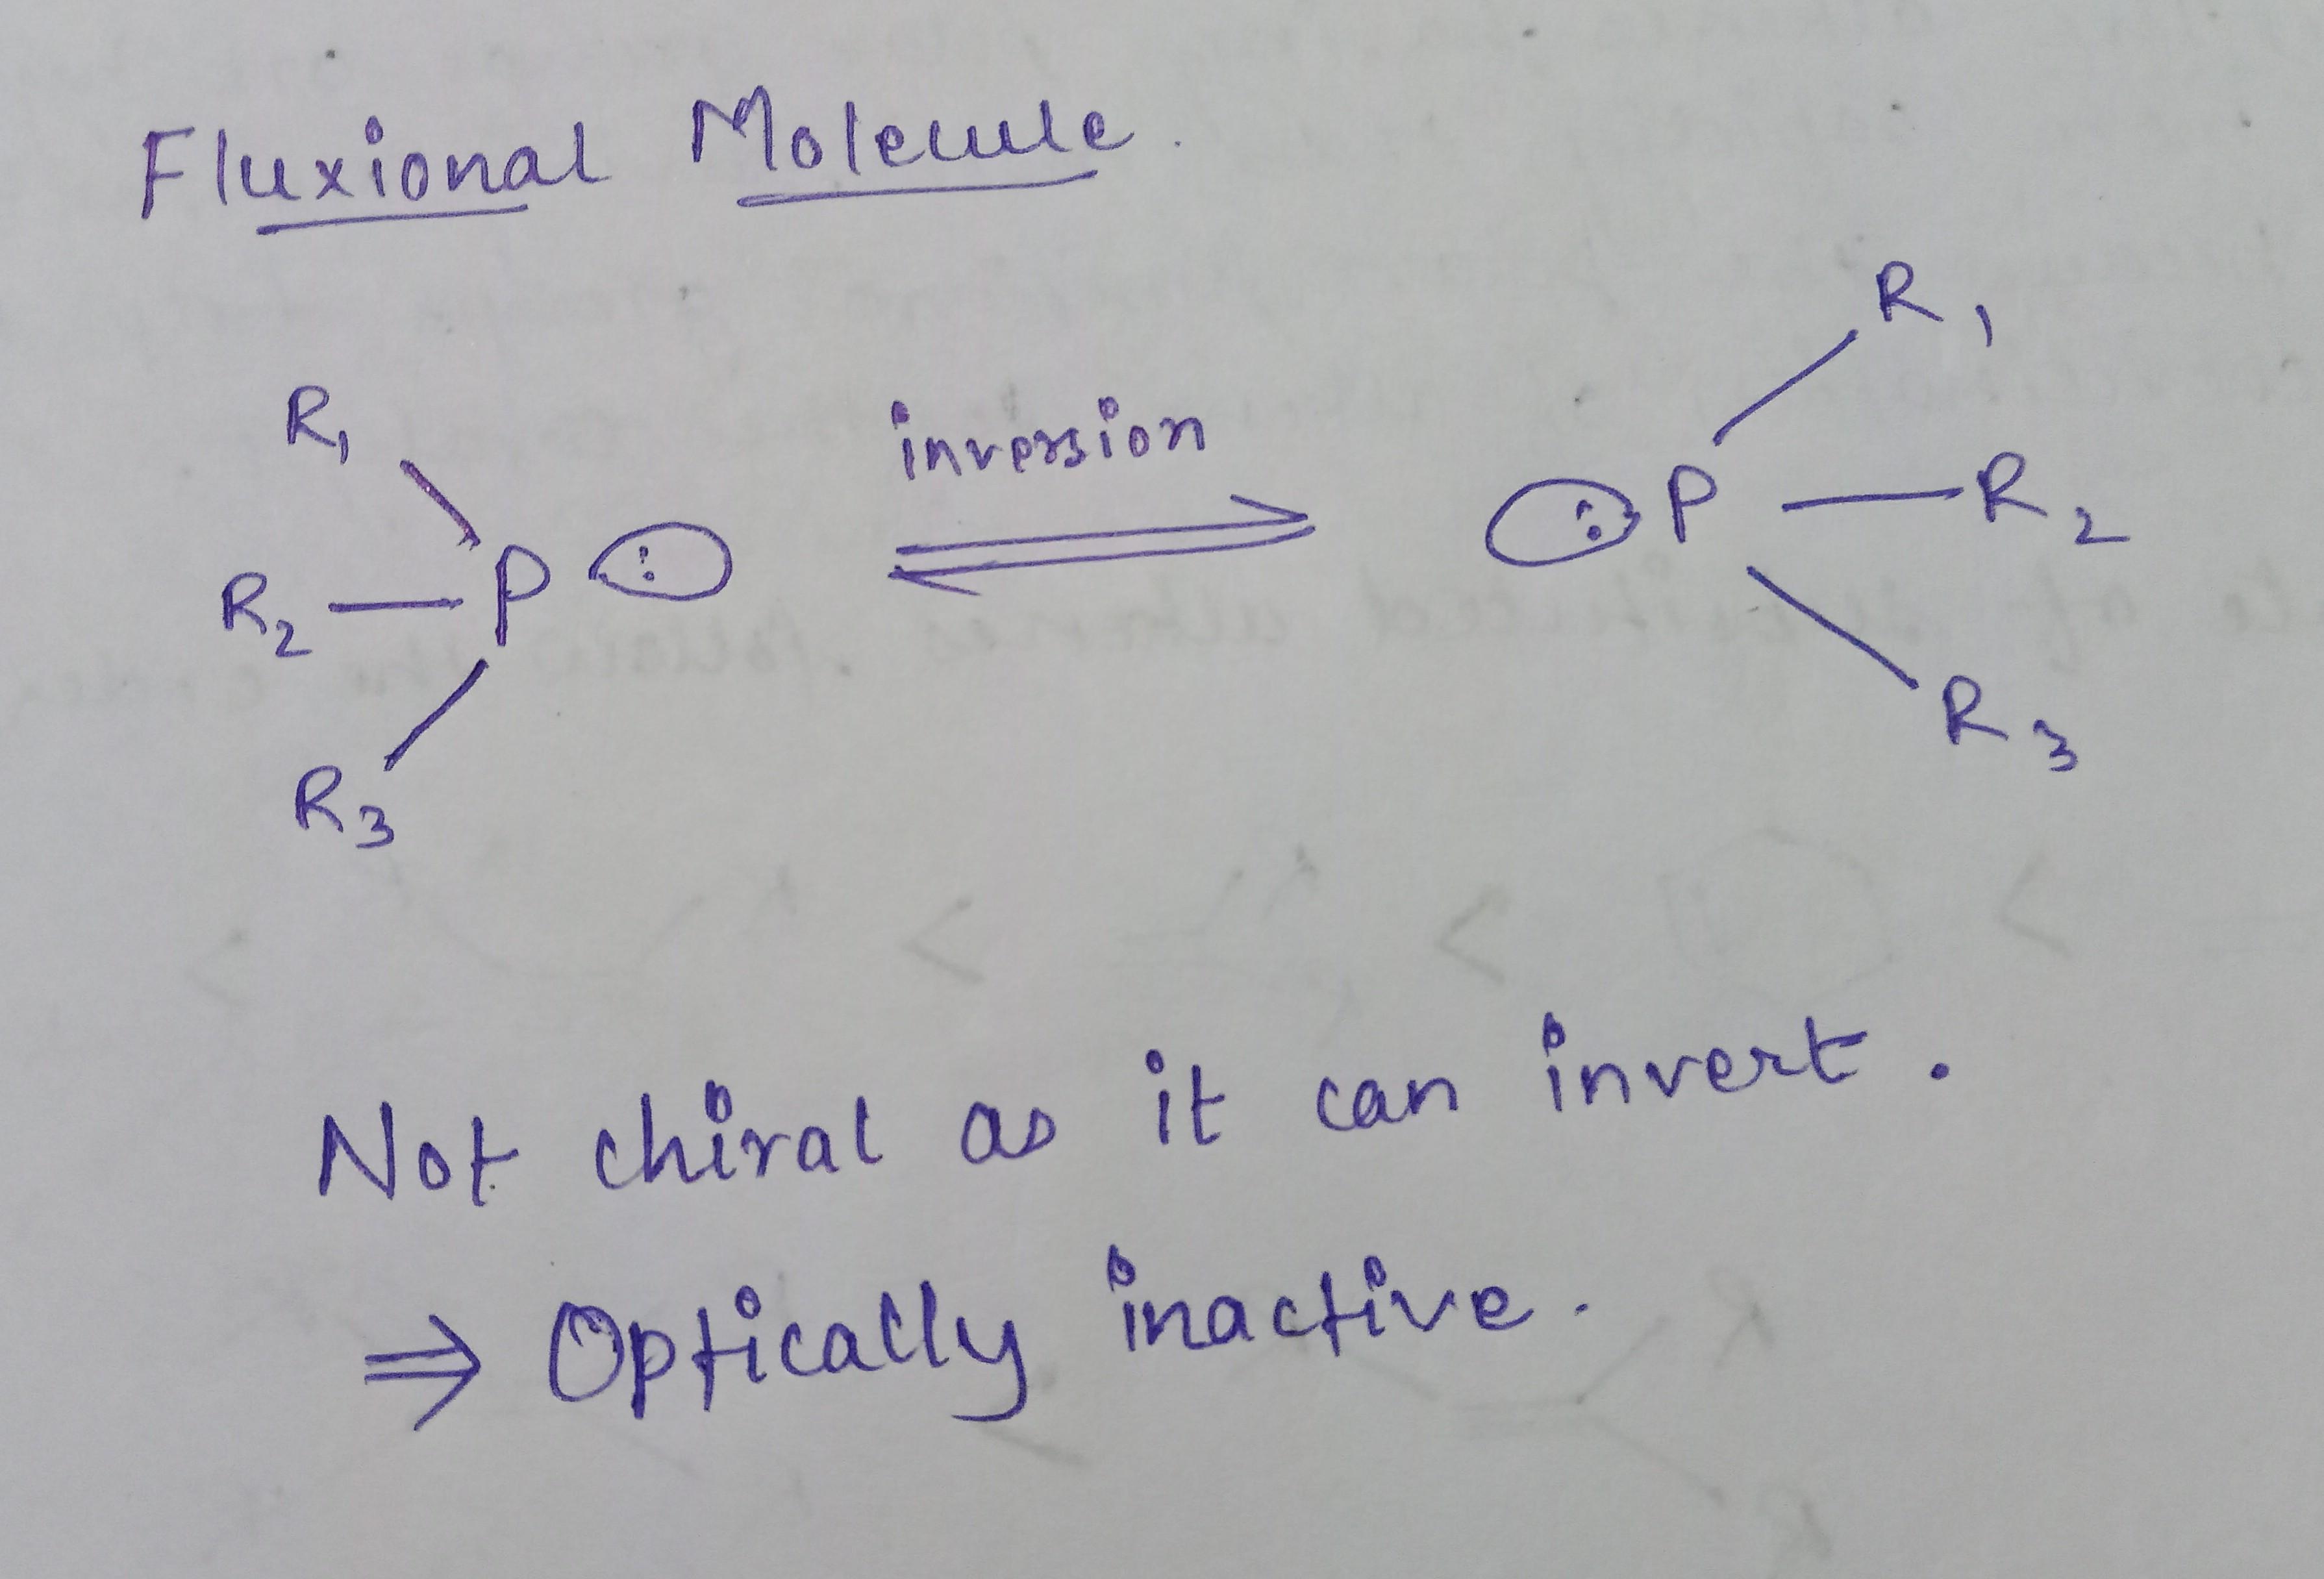 Fluxional Molecule.
R1
R2 — P :
R3
inversion
R1
: P — R2
R3
Not chiral as it can invert.
⇒ Optically inactive.